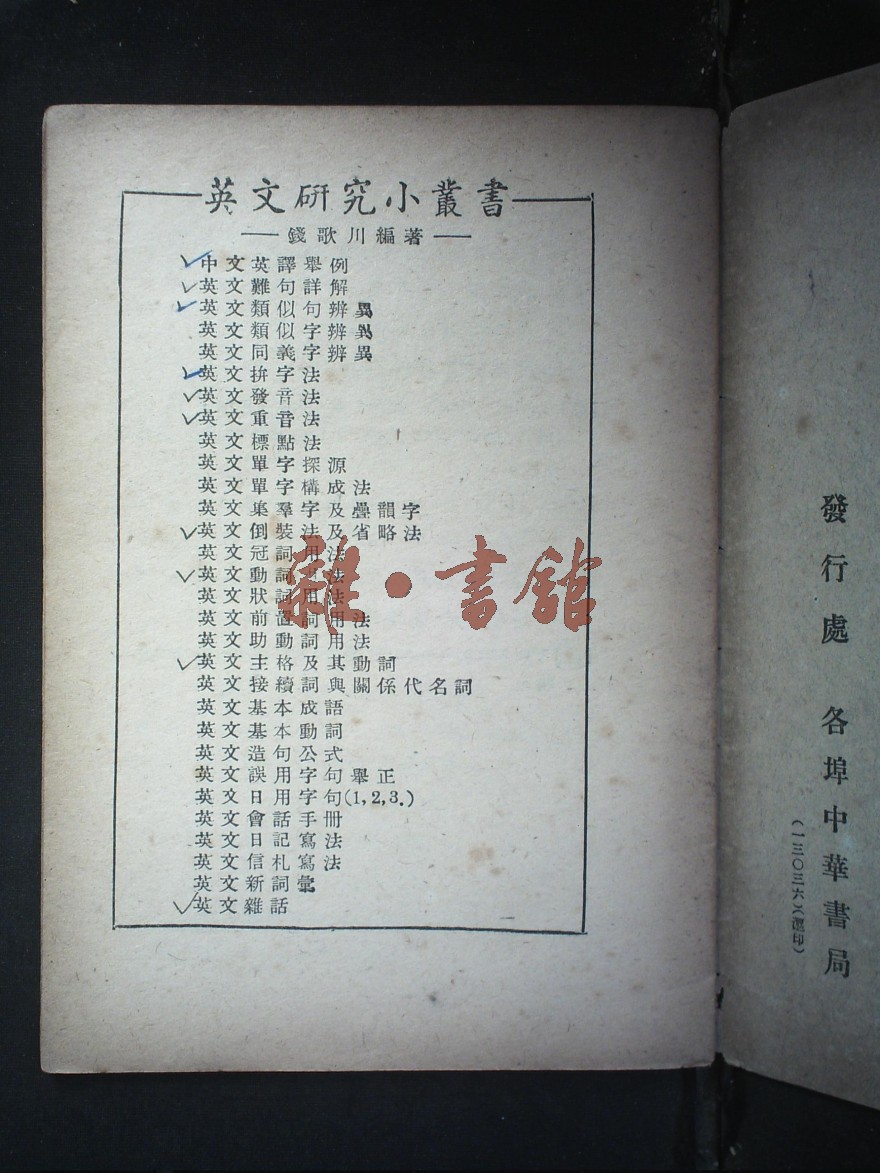 英文硏究小叢書
錢歌川編著
中文英譯舉例
英文難句詳解
英文類似句辨異
英文類似字辨異
英文同義字辨異
英文拚字法
英文發音法
英文重音法
英文標點法
英文單字探源
英文單字構成法
英文集羣字及疊韻字
英文倒裝法及省略法
英文冠詞用法
英文動詞用法
英文狀詞用法
英文前置詞用法
英文助動詞用法
英文主格及其動詞
英文接續詞與關係代名詞
英文基本成語
英文基本動詞
英文造句公式
英文誤用字句舉正
英文日用字句(1,2,3.)
英文會話手冊
英文日記寫法
英文信札寫法
英文新詞彙
英文雜話
雜·書館
發行處 各埠中華書局
(一三〇三六)(滬印)